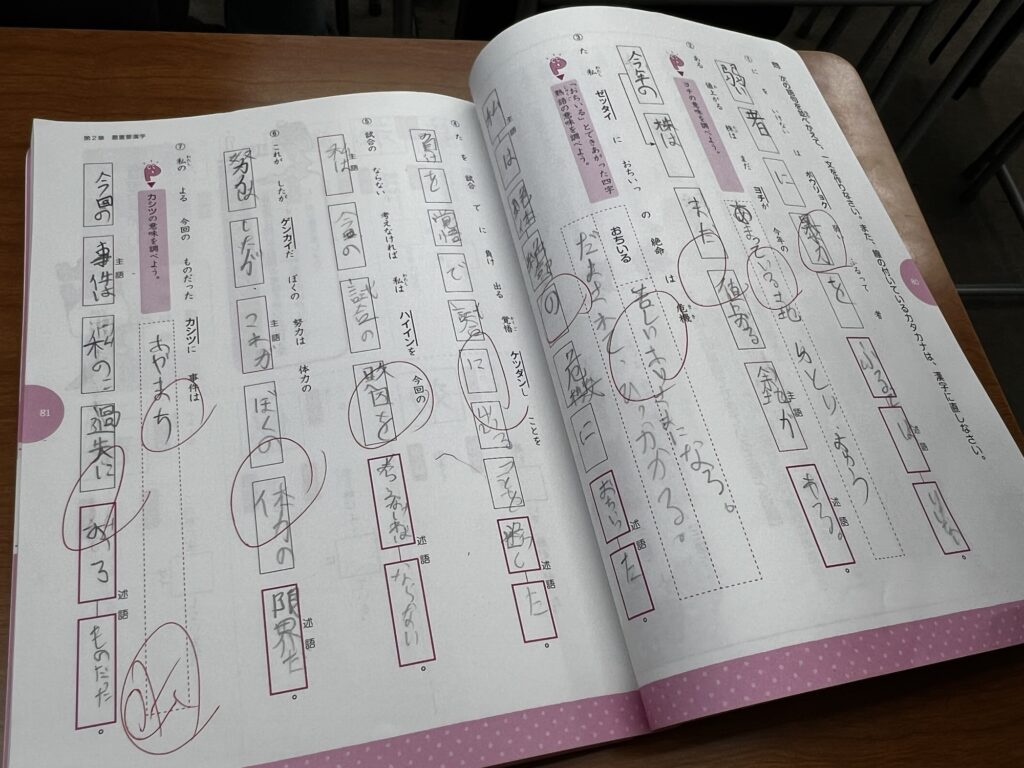 80
問 次の語句を並べかえて、一文を作りなさい。また、線の付いているカタカナは、漢字に直しなさい。
①
に を いけない は ボウリョク 弱 ふるって 者
弱者 に 暴力 を
述語
②
ある 値上がる 株は まだ ヨチが 今年の
ヨチの意味を調べよう。
今年の 株は まだ 値上がる 余地が ある 。
主語
述語
③
た 私 ゼッタイ に おちいっ の 絶命 は 危機
「おちいる」とできあがった四字熟語の意味を調べよう。
おちいる
私 は 絶体絶命 の 危機 に おちいっ た 。
述語
④
た を 試合 で に 負け 出る 覚悟 ケツダンし ことを
負け を 覚悟 で 試合 に 出る ことを 決断し た 。
述語
⑤
試合の ならない 考えなければ 私は ハイインを 今回の
私は 今回の 試合の 敗因を 考えなければ ならない 。
主語
述語
⑥
これが したが ゲンカイだ ぼくの 努力は 体力の
努力は したが、 これが ぼくの 体力の 限界だ 。
主語
述語
⑦
私の よる 今回の ものだった カシツに 事件は
カシツの意味を調べよう。
あやまち
今回の 事件は 私の 過失に よる ものだった 。
主語
述語
第2章 最重要漢字
81